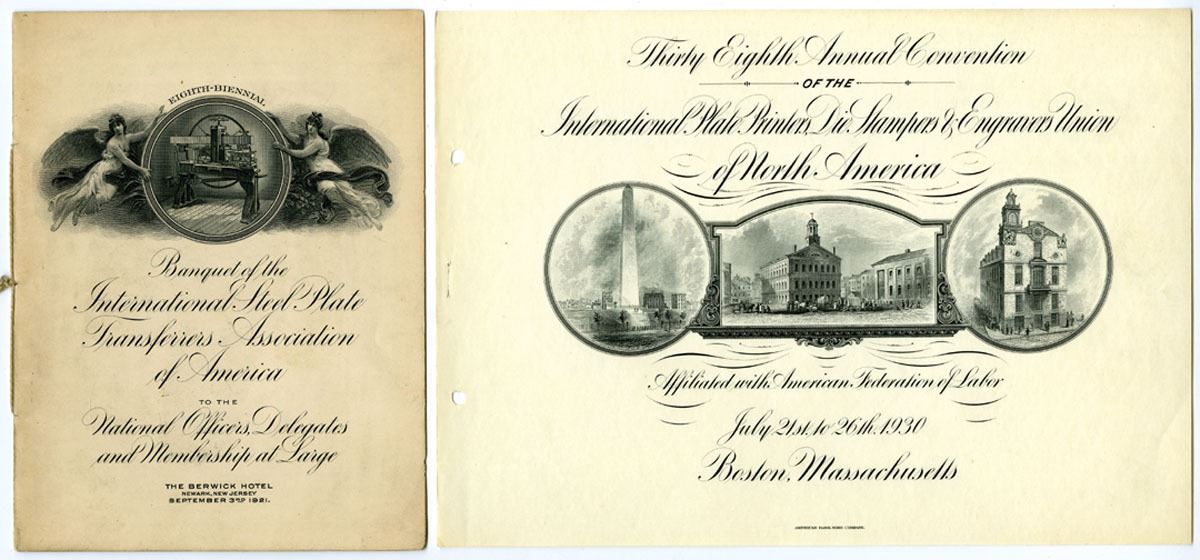 EIGHTH-BIENNIAL
Banquet of the
International Steel Plate
Transferrers Association
of America
TO THE
National Officers, Delegates
and Membership at Large
THE BERWICK HOTEL
NEWARK, NEW JERSEY
SEPTEMBER 3RD 1921.
Thirty Eighth Annual Convention
OF THE
International Plate Printers, Die Stampers & Engravers Union
of North America
Affiliated with American Federation of Labor
July 21st. to 26th. 1930
Boston, Massachusetts
AMERICAN BANK NOTE COMPANY.